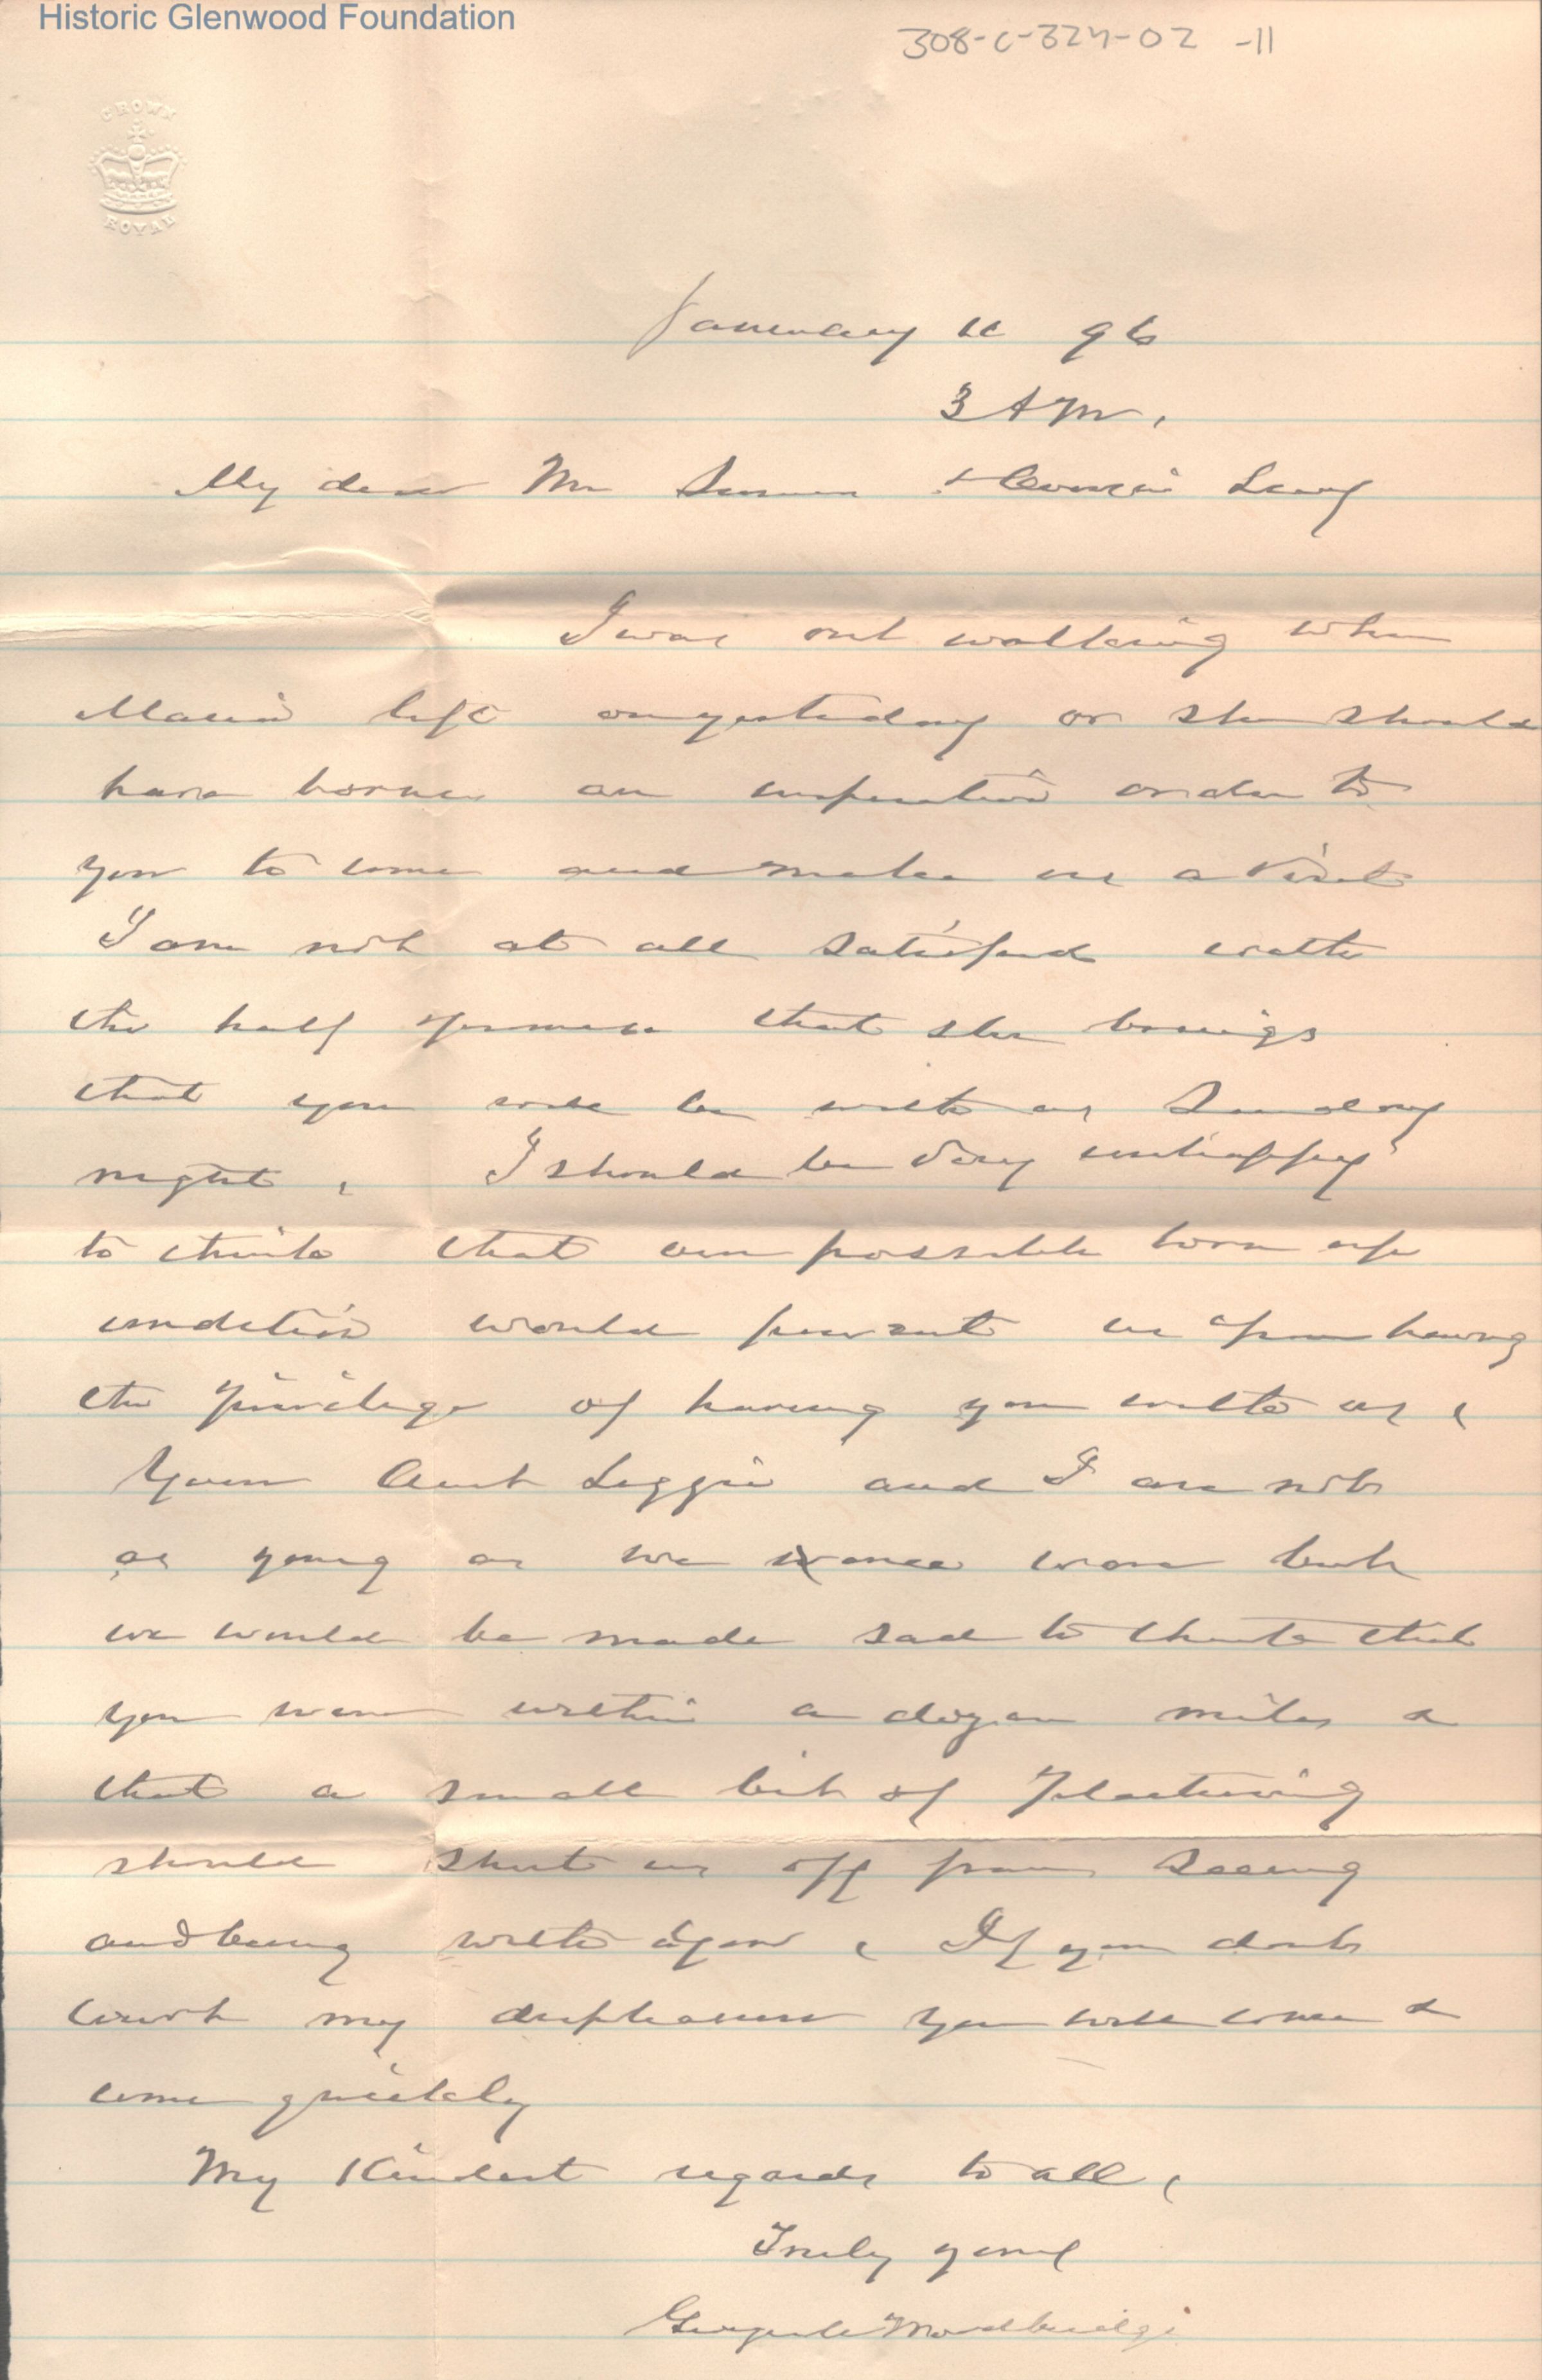 Historic Glenwood Foundation
308-C-324-02 -11
CROWN
ROYAL
January 11 96
3 AM.
My dear Mr & Cousin Lucy
I was out walking when
left on yesterday or she should
have borne an imperative order to
you to come and make us a visit
I am not at all satisfied with
the half promise that she brings
that you will be with us Sunday
night. I should be very unhappy
to think that our possible torn up
condition would prevent us from having
the privilege of having you with us.
Your Aunt Lizzie and I are not
as young as we once were but
we would be made sad to think that
you were within a dozen miles &
that a small bit of Plastering
should shut us off from seeing
and being with you. If you don't
court my displeasure you will come &
come quickly
My Kindest regards to all.
Truly yours
Woodbridge